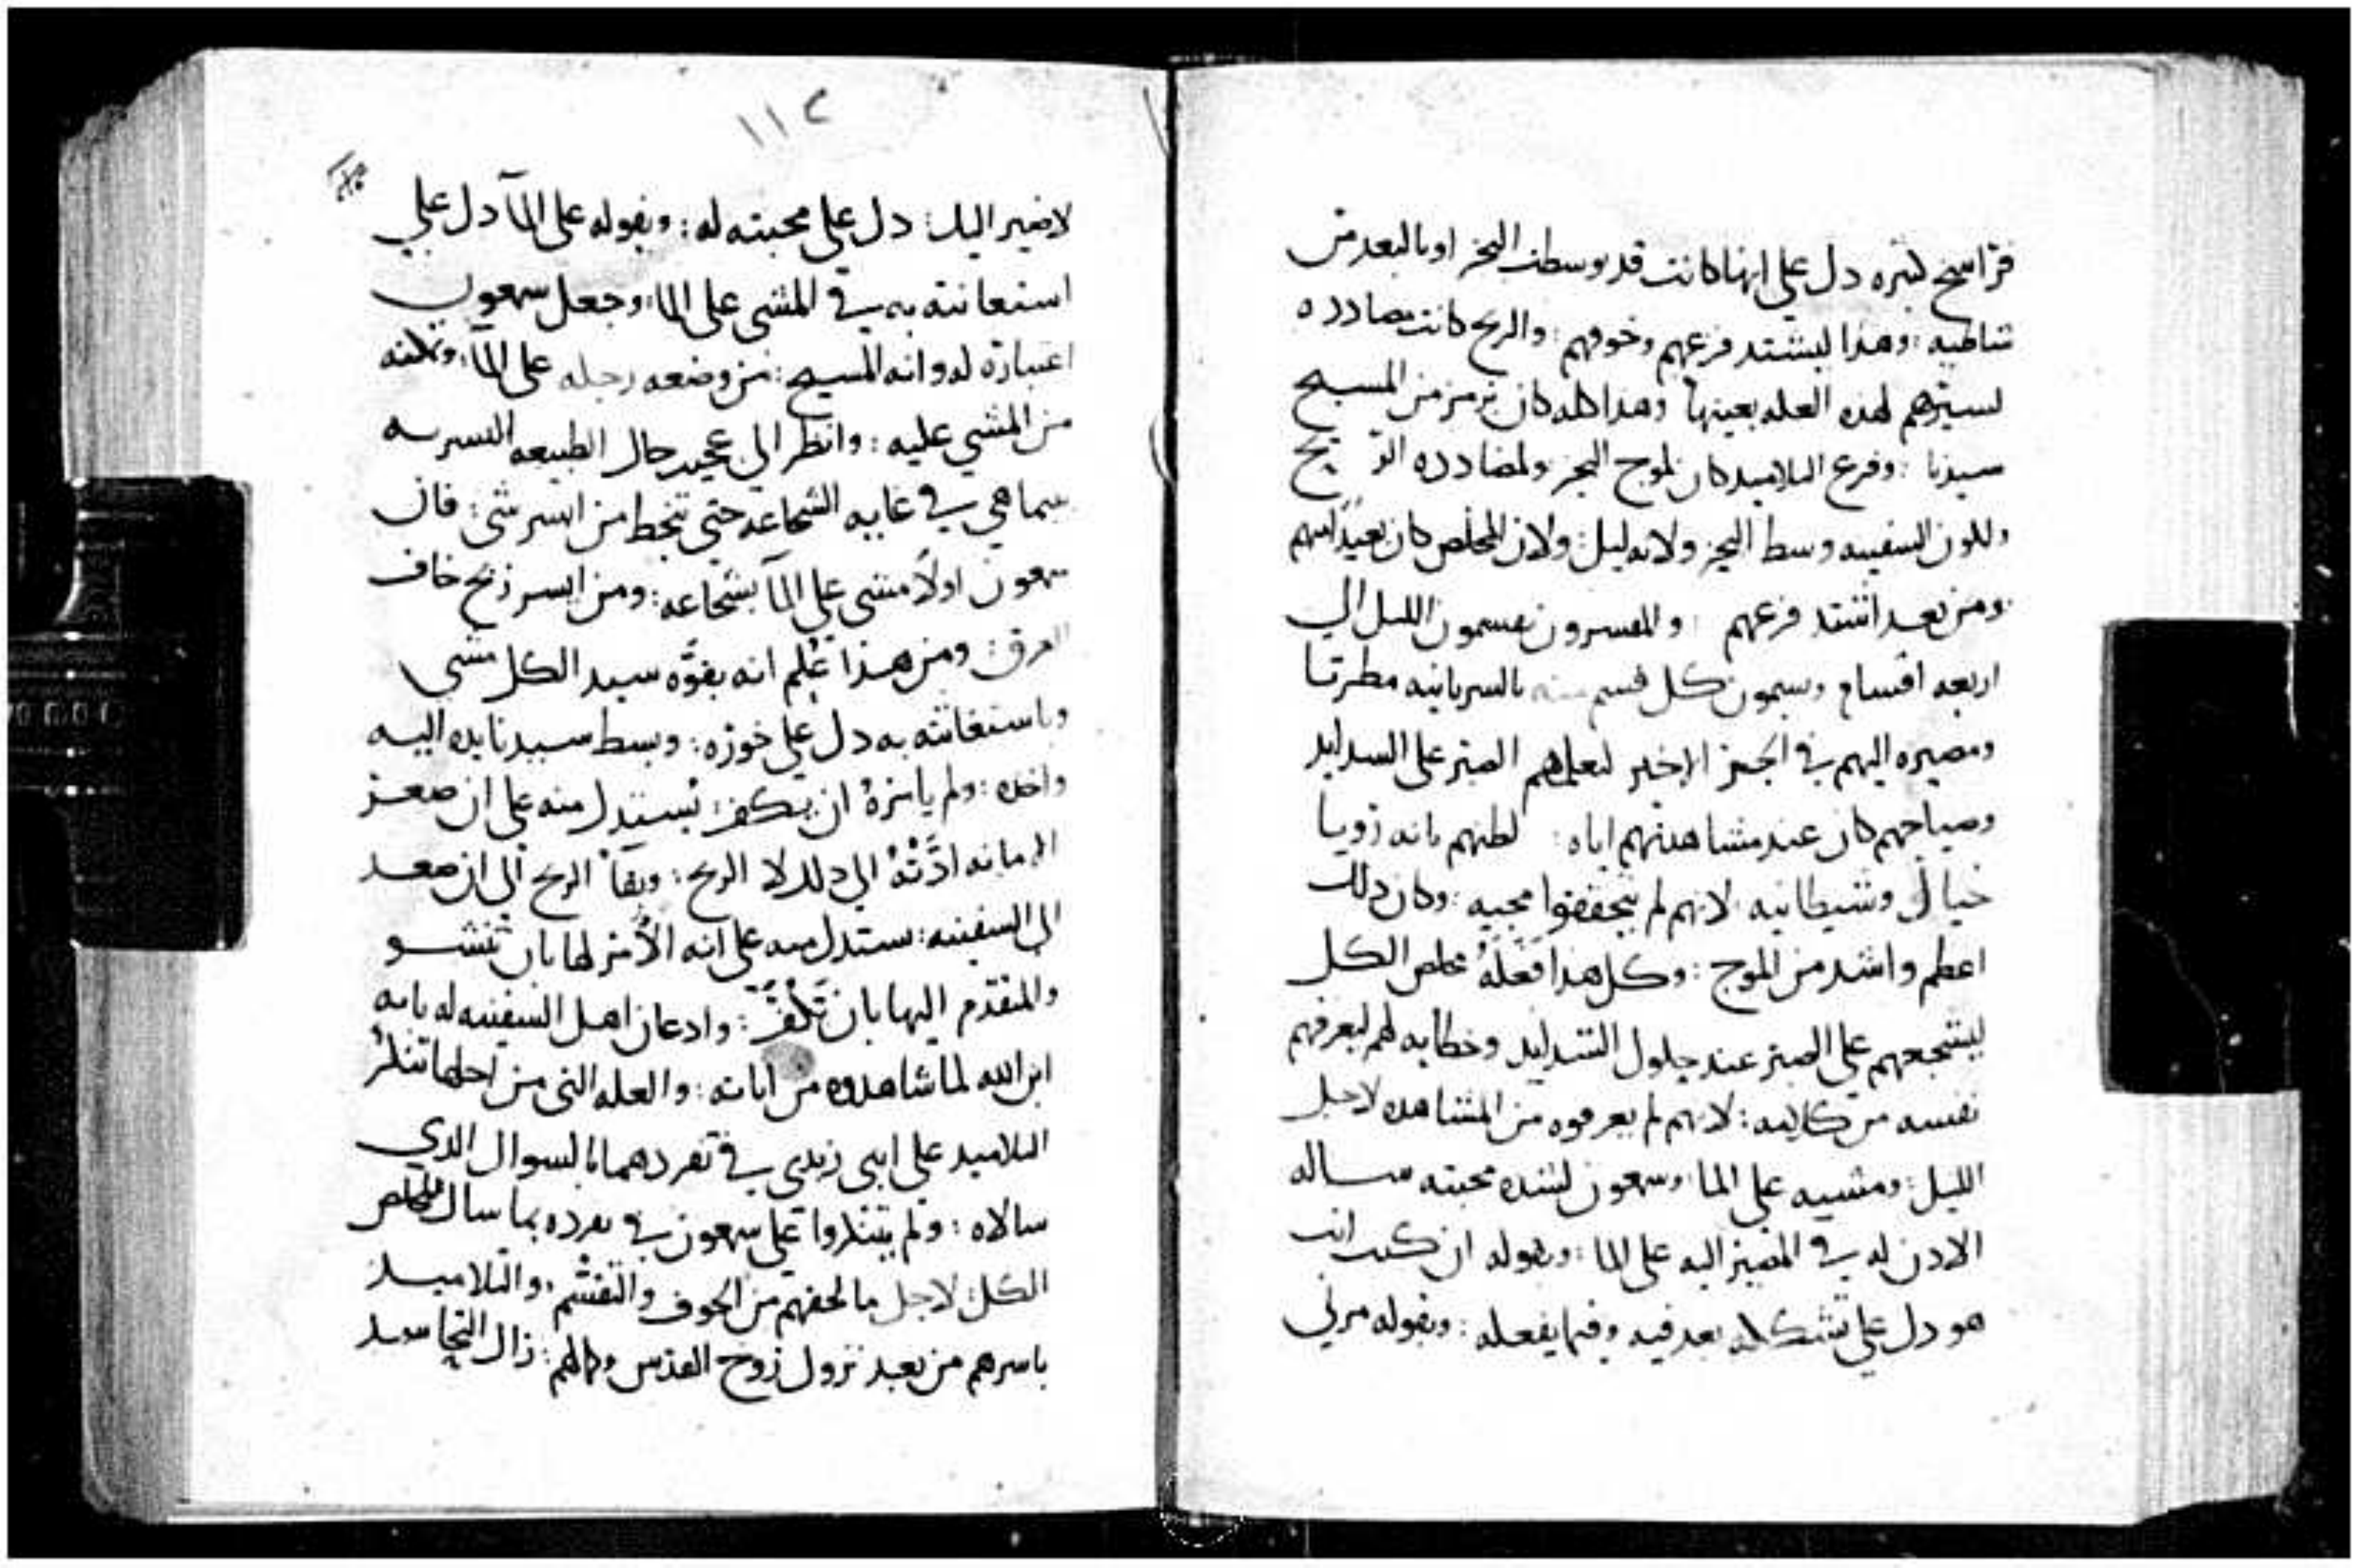 فراسخ كثيره دل على انها كانت قد توسطت البحر او بالبعد من
شاطيه : وهذا ليشتد فزعهم وخوفهم : والريح كانت مضادده
لسيرهم لهذه العله بعينها وهذا كله كان برمز من المسيح
سيدنا : وفزع التلاميد كان لموج البحر ولمضادده الريح
ولكون السفينه وسط البحر ولانه ليل : ولان المخلص كان بعيدا منهم
ومن بعد اشتد فزعهم : والمفسرون يقسمون الليل الى
اربعه اقسام ويسمون كل قسم منه بالسريانيه مطرتا
ومصيره اليهم في الجز الاخير لتعلمهم الصبر على الشدايد
وصياحهم كان عند مشاهدتهم اياه : لظنهم بانه رويا
خيال وشيطانيه لانهم لم يتحققوا مجيه : وكان دلك
اعظم واشد من الموج : وكل هدا فعله مخلص الكل
ليشجعهم على الصبر عند حلول الشدايد وخطابه لهم ليعرفهم
نفسه من كلامه : لانهم لم يعرفوه من المشاهده لاجل
الليل : ومشيه على الما وسمعون لشده محبته ساله
الادن له في المصير اليه على الما : وبقوله ان كنت انت
هو دل على تشككه بعد فيه وفيما يفعله : وبقوله مرني
١١٢
لا ضير اليك : دل على محبته له : وبقوله على المآ دل على
استعانته به في المشي على الما : وجعل سمعون
اعتباره له وانه المسيح : من وضعه رجله على المآ : وتمكنه
من المشي عليه : وانظر الى عجيب حال الطبيعه البشريه
بينما هي في غايه الشجاعه حتى تنحط من ايسر شي : فان
سمعون اولاً مشى على المآ بشجاعه : ومن ايسر ريح خاف
الغرق : ومن هذا عُلم انه بقوّه سيد الكل مشى
وباستغاثته به دل على خوره : وبسط سيدنا يده اليه
واخده : ولم يامره ان يكف : يستدل منه على ان صغر
الامانه ادَّتْهُ الى دلك لا الريح : وبقا الريح الى ان صعد
الى السفينه : يستدل منه على انه الآمر لها بان تنشو
والمتقدم اليها بان تكُفّ : وادعان اهل السفينه له بانه
ابن الله لما شاهدوه من اياته : والعله التي من اجلها تنكر
التلاميد على ابني زبدي في تفردهما بالسوال الدي
سالاه : ولم يتنكروا على سمعون في تفرده بما سال مخلص
الكل لاجل ما لحقهم من الخوف والتقشم والتلاميد
باسرهم من بعد نزول روح القدس وكمالهم : زال التحاسد